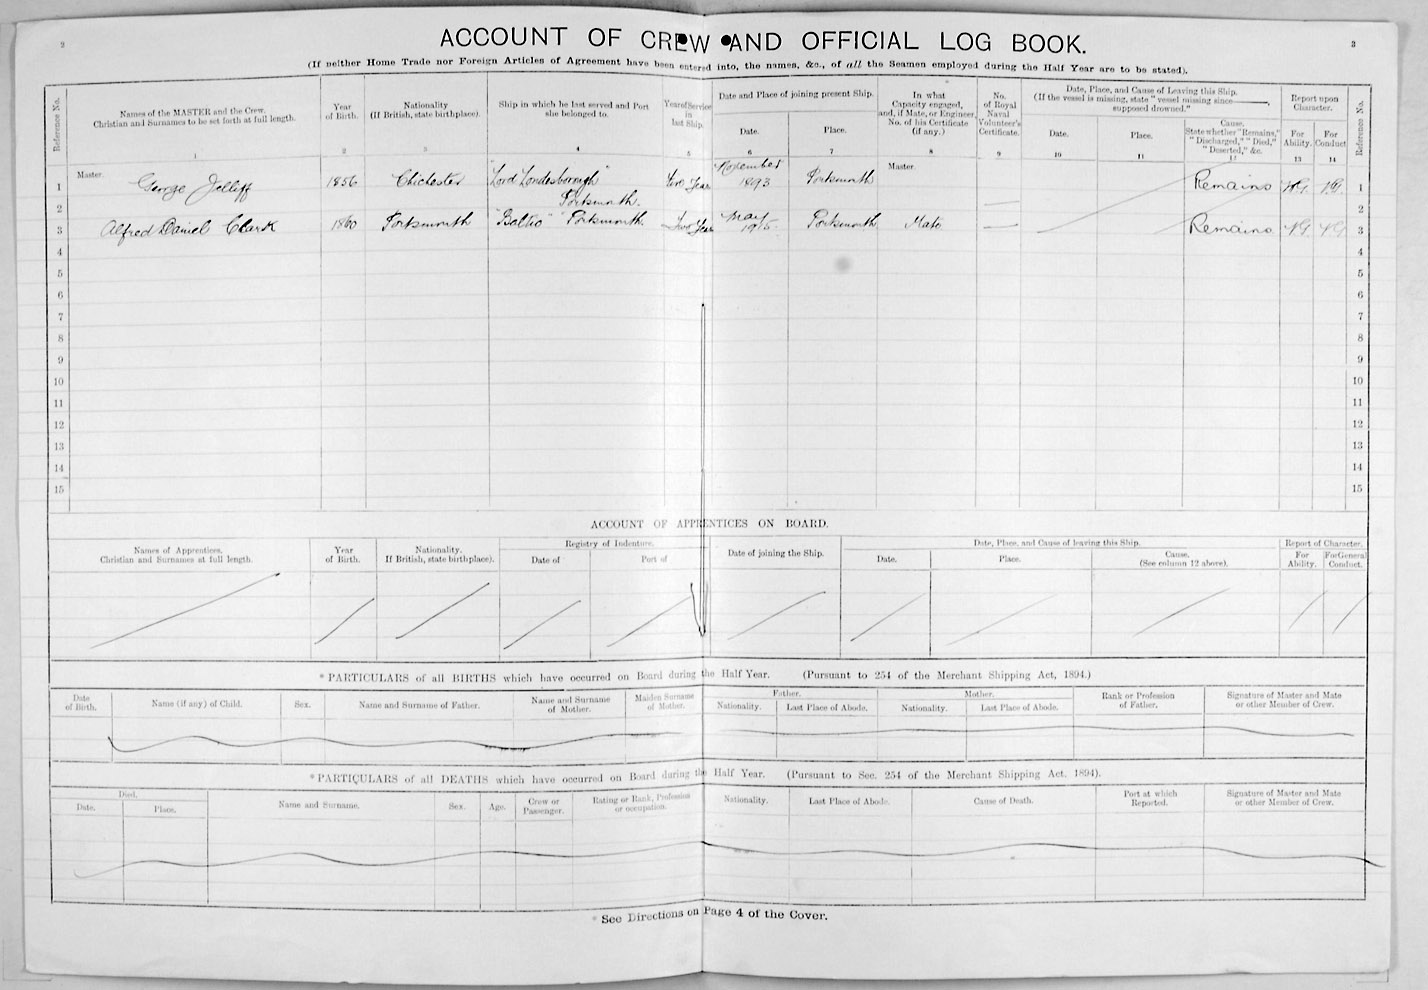 2
3
ACCOUNT OF CREW AND OFFICIAL LOG BOOK.
(If neither Home Trade nor Foreign Articles of Agreement have been entered into, the names, &c., of all the Seamen employed during the Half Year are to be stated).
Reference No.
Names of the MASTER and the Crew.
Christian and Surnames to be set forth at full length.
1
Year
of Birth.
2
Nationality
(If British, state birthplace).
3
Ship in which he last served and Port
she belonged to.
4
Year of Service
in
last Ship.
5
Date and Place of joining present Ship.
Date.
6
Place.
7
In what
Capacity engaged,
and, if Mate, or Engineer,
No. of his Certificate
(if any.)
8
No.
of Royal
Naval
Volunteer's
Certificate.
9
Date, Place, and Cause of Leaving this Ship.
(If the vessel is missing, state "vessel missing since ———,
supposed drowned."
Date.
10
Place.
11
Cause.
State whether "Remains,"
"Discharged," "Died,"
"Deserted," &c.
12
Report upon
Character.
For
Ability.
13
For
Conduct
14
Reference No.
1 Master. George Jelliff 1856 Chichester "Lord Londesborough" Portsmouth. Two Year November 1893 Portsmouth Master. Remains VG VG 1
2 2
3 Alfred Daniel Clark 1860 Portsmouth "Baltic" Portsmouth. Two Year May 1915. Portsmouth Mate Remains VG VG 3
4 4
5 5
6 6
7 7
8 8
9 9
10 10
11 11
12 12
13 13
14 14
15 15
ACCOUNT OF APPRENTICES ON BOARD.
Names of Apprentices.
Christian and Surnames at full length.
Year
of Birth.
Nationality.
If British, state birthplace).
Registry of Indenture.
Date of
Port of
Date of joining the Ship.
Date, Place, and Cause of leaving this Ship.
Date.
Place.
Cause.
(See column 12 above).
Report of Character.
For
Ability.
For General
Conduct.
*PARTICULARS of all BIRTHS which have occurred on Board during the Half Year. (Pursuant to 254 of the Merchant Shipping Act, 1894.)
Date
of Birth.
Name (if any) of Child.
Sex.
Name and Surname of Father.
Name and Surname
of Mother.
Maiden Surname
of Mother.
Father.
Nationality.
Last Place of Abode.
Mother.
Nationality.
Last Place of Abode.
Rank or Profession
of Father.
Signature of Master and Mate
or other Member of Crew.
*PARTICULARS of all DEATHS which have occurred on Board during the Half Year. (Pursuant to Sec. 254 of the Merchant Shipping Act. 1894).
Died.
Date.
Place.
Name and Surname.
Sex.
Age.
Crew or
Passenger.
Rating or Rank, Profession
or occupation.
Nationality.
Last Place of Abode.
Cause of Death.
Port at which
Reported.
Signature of Master and Mate
or other Member of Crew.
* See Directions on Page 4 of the Cover.